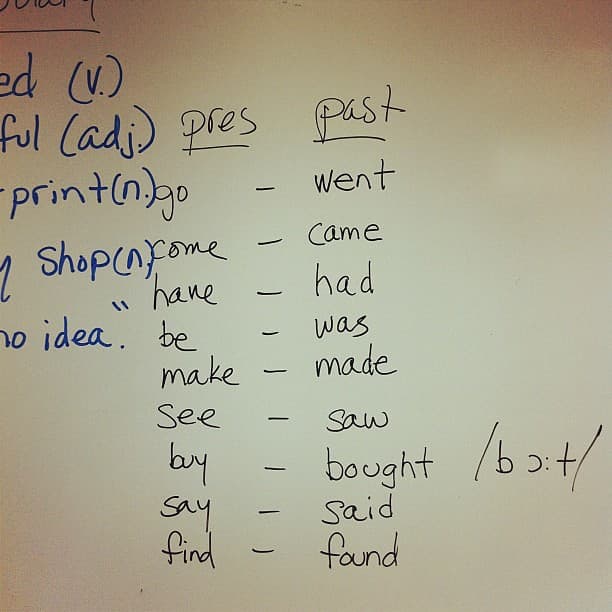 ed (v.)
ful (adj.)
print (n.)
shop (n)
no idea."
pres past
go - went
come - came
have - had
be - was
make - made
see - saw
buy - bought /bɔ:t/
say - said
find - found